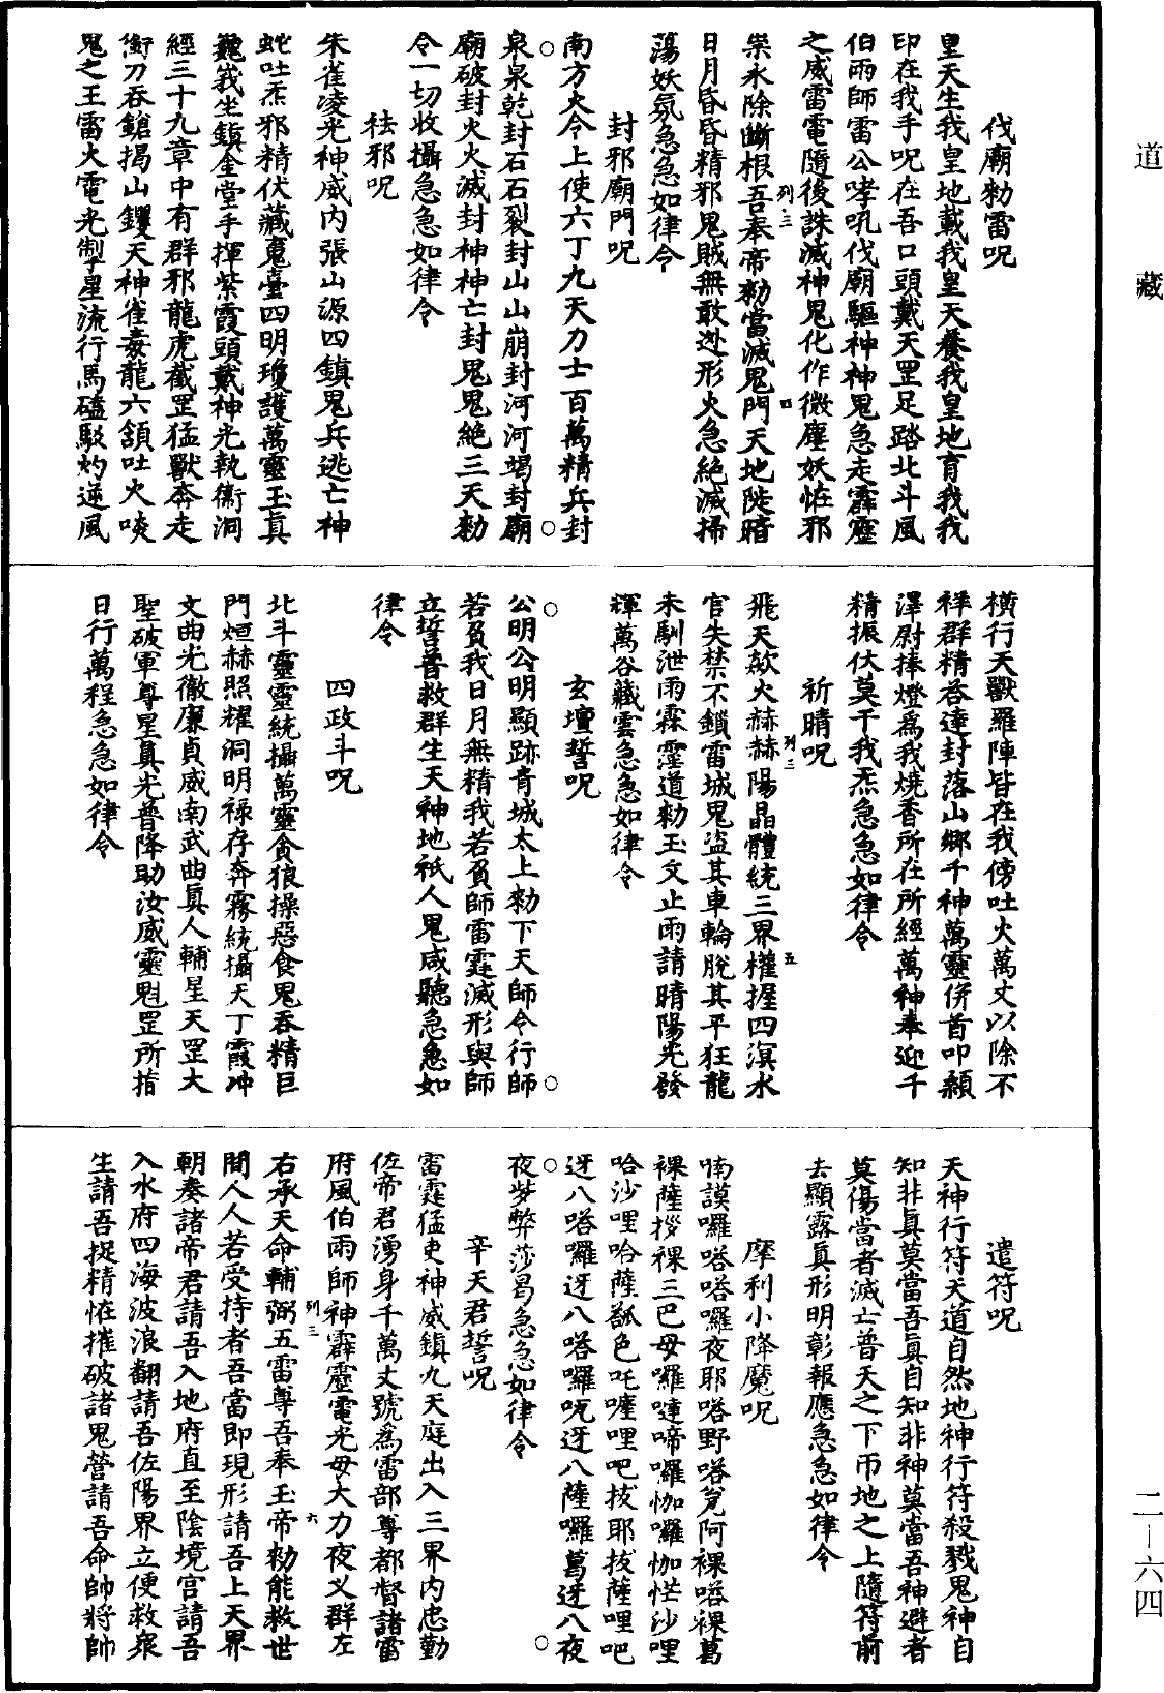 道藏
伐廟勑雷呪
皇天生我皇地載我皇天養我皇地育我我
印在我手呪在吾口頭戴天罡足踏北斗風
伯雨師雷公哮吼伐廟驅神神鬼急走霹靂
之威雷電隨後誅滅神鬼化作微塵妖恠邪
祟永除斷根吾奉帝勑當滅鬼門天地陡暗
列三
四
日月昏昏精邪鬼賊無敢逃形火急絕滅掃
蕩妖氛急急如律令
封邪廟門呪
南方火令上使六丁九天力士百萬精兵封
泉泉乾封石石裂封山山崩封河河竭封廟
廟破封火火滅封神神亡封鬼鬼絕三天勑
令一切收攝急急如律令
祛邪呪
朱雀凌光神威內張山源四鎮鬼兵逃亡神
蛇吐炁邪精伏藏嵬臺四明瓊護萬靈玉眞
巍峩坐鎮金堂手揮紫霞頭戴神光執衞洞
經三十九章中有群邪龍虎截罡猛獸奔走
衝刀吞鎗揭山钁天神雀毒龍六頷吐火啖
鬼之王雷火電光制星流行馬磕馭灼逆風
橫行天獸羅陣皆在我傍吐火萬丈以除不
祥群精吞達封落山鄉千神萬靈併首叩顙
澤尉捧燈爲我燒香所在所經萬神奉迎千
精振伏莫干我炁急急如律令
祈晴呪
飛天歘火赫赫陽晶體統三界權握四溟水
列三
五
官失禁不鎖雷城鬼盜其車輪脫其平狂龍
未馴泄雨霖霪道勑玉文止雨請晴陽光發
輝萬谷藏雲急急如律令
玄壇誓呪
公明公明顯跡青城太上勑下天師令行師
若負我日月無精我若負師雷霆滅形與師
立誓普救群生天神地祇人鬼咸聽急急如
律令
四政斗呪
北斗靈靈統攝萬靈貪狼操惡食鬼吞精巨
門烜赫照耀洞明祿存奔霧統攝天丁霞沖
文曲光徹廉貞威南武曲眞人輔星天罡大
聖破軍尊星眞光普降助汝威靈魁罡所指
日行萬程急急如律令
遣符呪
天神行符天道自然地神行符殺戮鬼神自
知非眞莫當吾眞自知非神莫當吾神避者
莫傷當者滅亡普天之下帀地之上隨符前
去顯露真形明彰報應急急如律令
摩利小降魔呪
喃謨囉嗒嗒囉夜耶嗒野嗒㝹阿裸嗒裸葛
裸薩拶裸三巴母囉噠啼囉恤囉恤恾沙哩
哈沙哩哈薩㗣色吒㘄哩吧拔耶拔薩哩吧
迓八嗒囉迓八嗒囉吮迓八薩囉萬迓八夜
夜娑弊莎曷急急如律令
辛天君誓呪
雷霆猛吏神威鎮九天庭出入三界內忠勤
佐帝君湧身千萬丈號爲雷部尊都督諸雷
府風伯雨師神霹靂電光母大力夜叉群左
列三
六
右承天命輔弼五雷尊吾奉玉帝勑能救世
間人人若受持者吾當即現形請吾上天界
朝奏諸帝君請吾入地府直至陰境宫請吾
入水府四海波浪翻請吾佐陽界立便救衆
生請吾捉精恠摧破諸鬼營請吾命帥將帥
二—六四